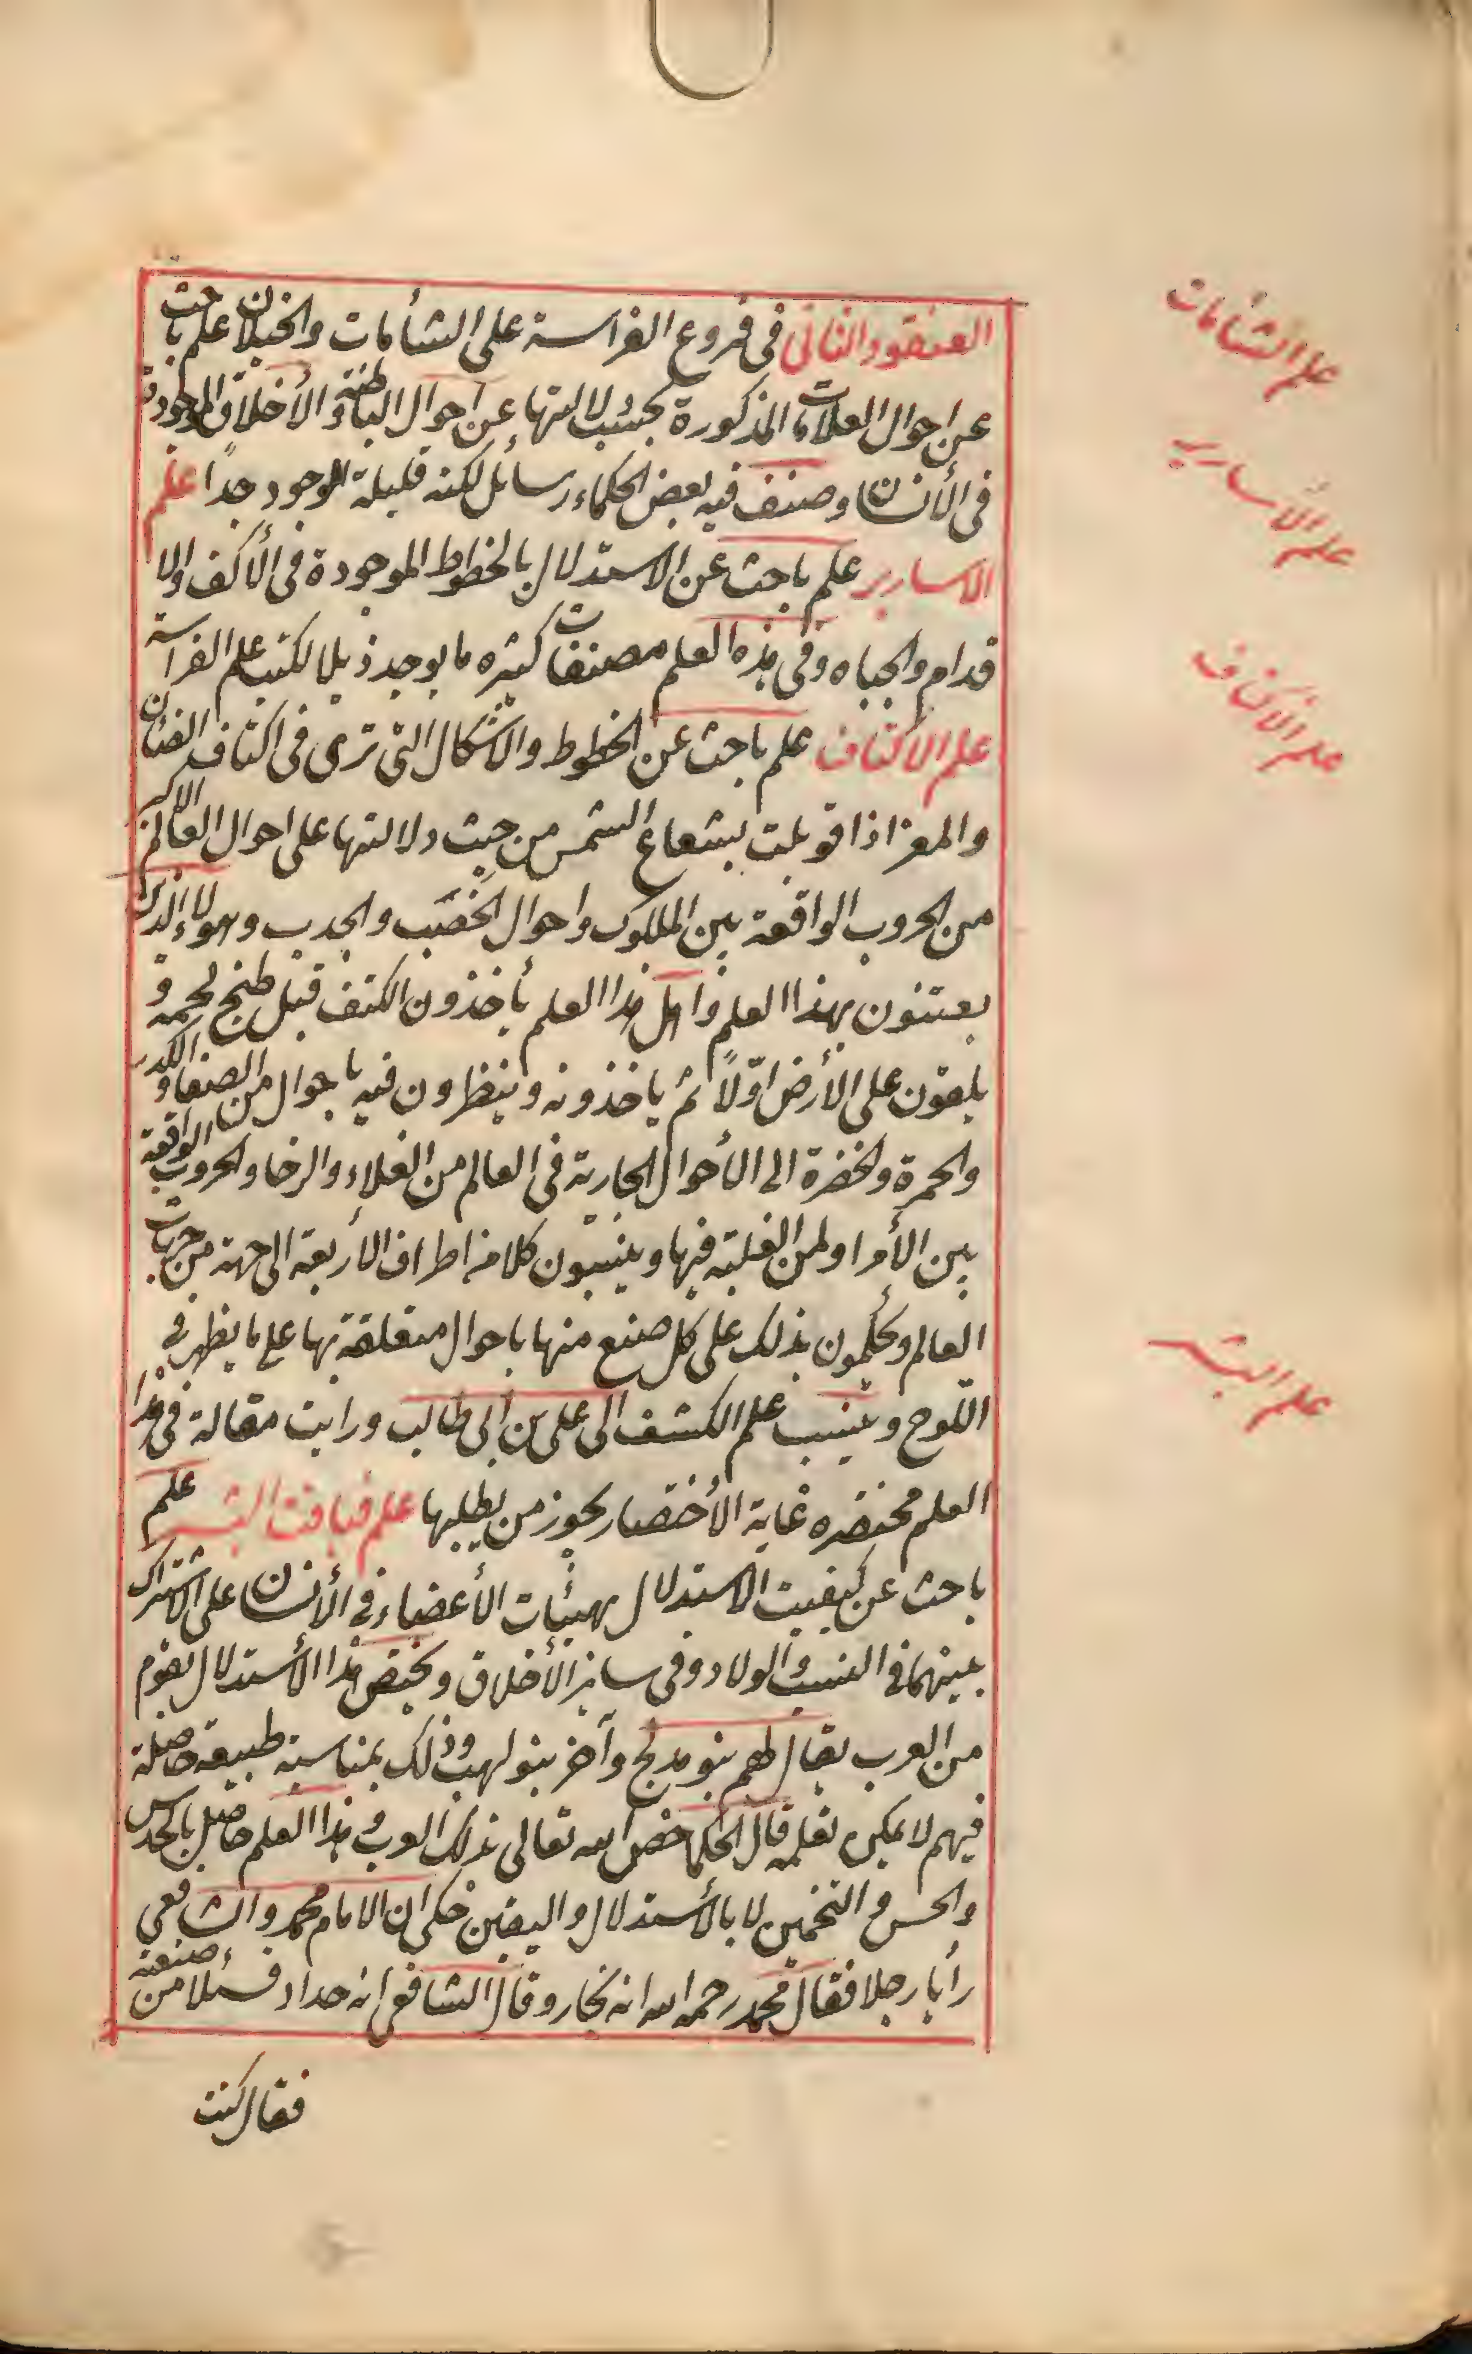 العنقود الثانى فى فروع الفراسة على الشأمات والخيلان علم باحث
عن احوال العلامات المذكورة بحسب دلالتها عن احوال الباطنة والأخلاق الموجودة
فى الأنسان وصنف فيه بعض الحكماء رسائل لكنه قليلة الوجود جدا علم
الاسارير علم باحث عن الاستدلال بالخطوط الموجودة فى الأكف والا
قدام والجباه وفى هذه العلم مصنفات كثيره ما يوجد ذيلا لكتب علم الفراسة
علم الاكتاف علم باحث عن الخطوط والأشكال التى ترى فى اكتاف الضئان
والمعز اذا قوبلت بشعاع الشمس من حيث دلالتها على احوال العالم الاكبر
من الحروب الواقعة بين الملوك واحوال الخصب والجدب وهولاء الذين
يعتنون بهذا العلم واهل هذا العلم يأخذون الكتف قبل طبخ لحمه و
يلقون على الأرض اوّلاً ثم ياخذونه وينظرون فيه باحوال من الصفا والكدر
والحمرة والخضرة الى الأحوال الجارية فى العالم من الغلاء والرخا والحروب الواقعة
بين الأمرا ولمن الغلبة فيها وينسبون كلا من اطراف الأربعة الى جهة من جهات
العالم ويحكمون بذلك على كل صنع منها باحوال متعلقة بها على ما يظهر فى
اللوح وينسب علم الكتف الى على بن ابى طالب ورايت مقالة فى هذا
العلم مختصره غاية الأختصار يجوز من يطلبها علم قيافت البشر علم
باحث عن كيفيت الاستدلال بهيئات الأعضاء فى الأنسان على الاشتراك
بينهما فى النسب والولاد وفى سائر الأخلاق ويختص هذا الأستدلال بقوم
من العرب يقال لهم بنو مدلج وآخر بنو لهب وذلك بمناسبة طبيعة حاصلة
فيهم لا يمكن تعلمه قال الحكما خص الله تعالى بذلك العرب وهذا العلم حاصل بالحدس
والحس والتخمين لا بالأستدلال واليقين حكى ان الامام محمد والشافعى
رأيا رجلا فقال محمد رحمه الله انه نجار وقال الشافعى انه حداد فسئلا من صنعته
فقال كنت
علم الشأمات
علم الأسارير
علم الأكتاف
علم البشر